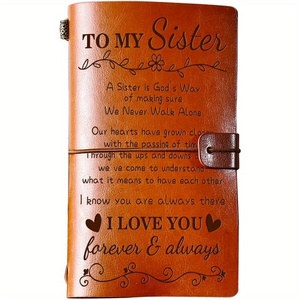 TO MY Sister
A Sister is God's Way
of making sure
We Never Walk Alone.
Our hearts have grown close
with the passing of time
Through the ups and downs
we've come to understand
what it means to have each other
I know you are always there
I LOVE YOU
forever & always